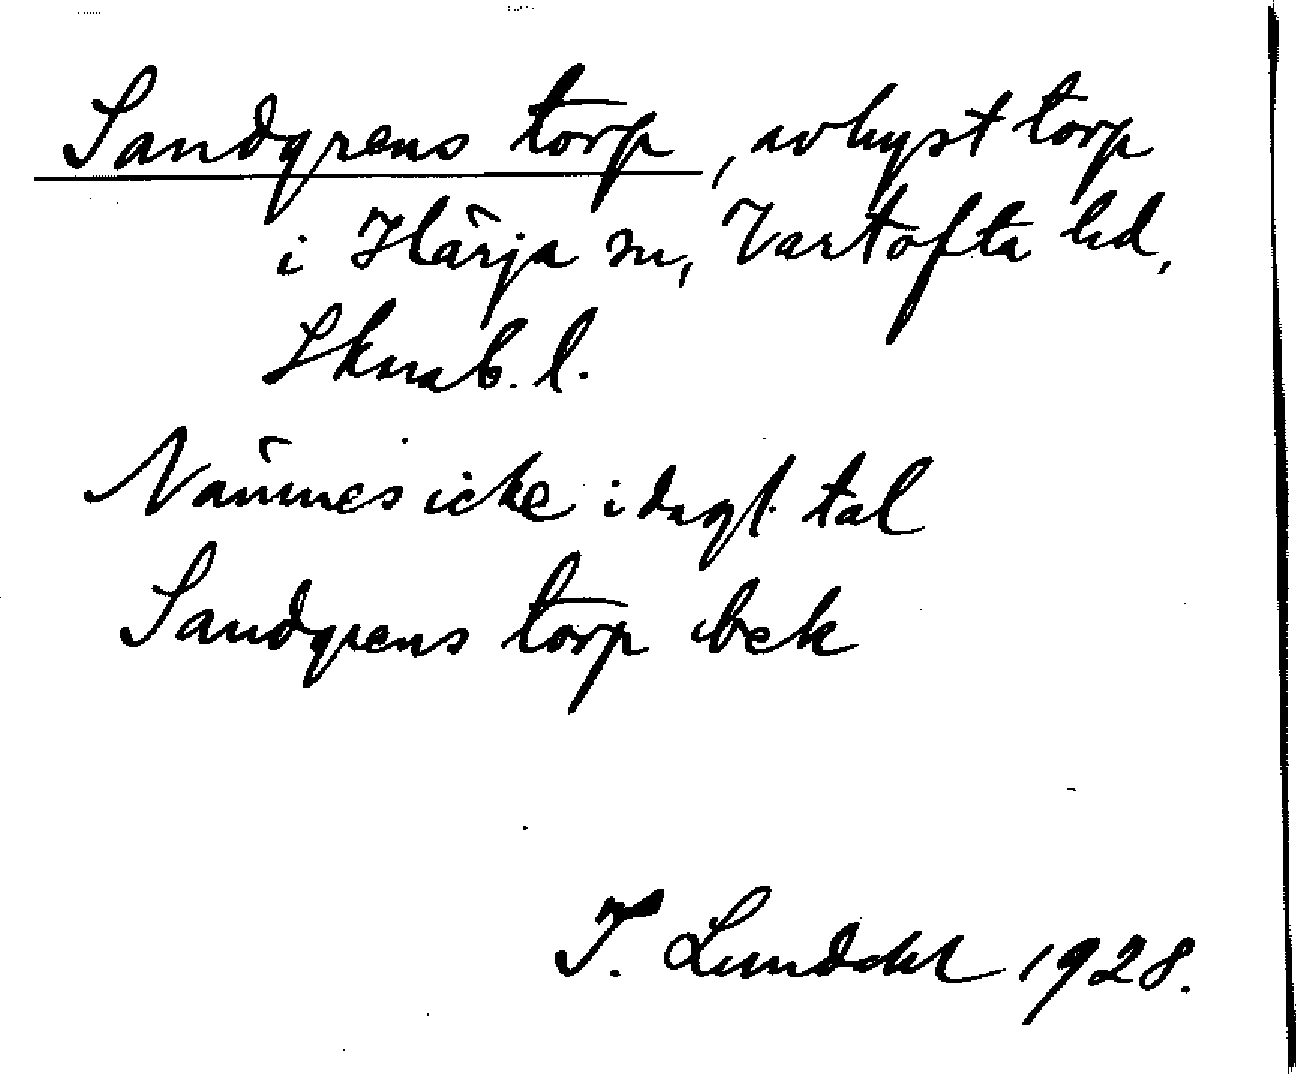 Sandgrens torp, avhyst torp
i Härja sn, Vartofta hd,
Skarab. l.
Nämnes icke i dagl. tal
Sandgrens torp bek
T. Lunddahl 1928.